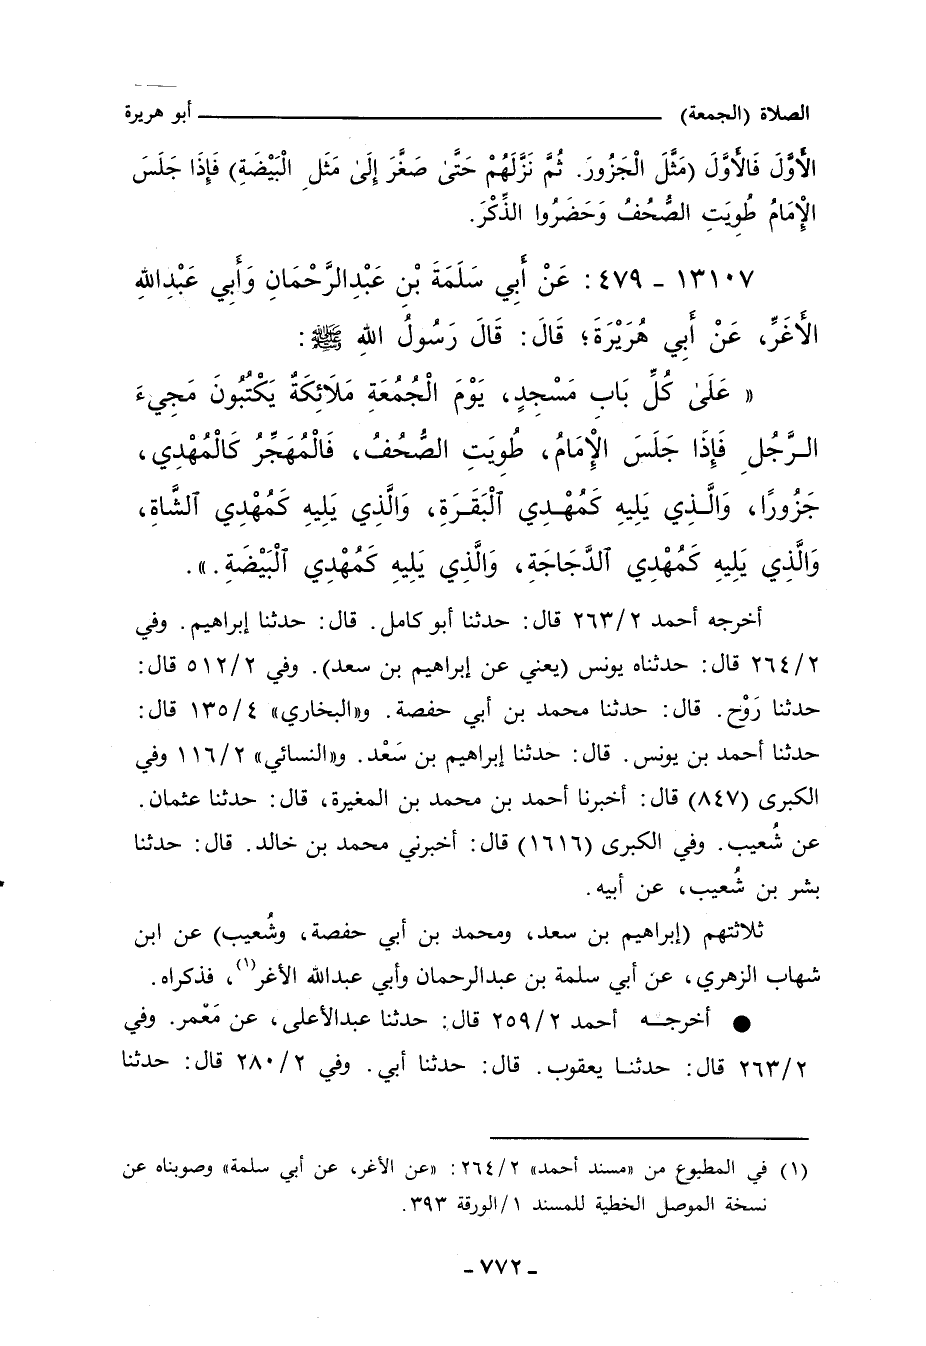 الصلاة (الجمعة) ــــــــــــ أبو هريرة
الأَوَّلَ فَالأَوَّلَ (مَثَّلَ الْجَزُورَ. ثُمَّ نَزَّلَهُمْ حَتَّىٰ صَغَّرَ إِلَىٰ مَثَلِ الْبَيْضَةِ) فَإِذَا جَلَسَ
الإِمَامُ طُوِيَتِ الصُّحُفُ وَحَضَرُوا الذِّكْرَ.
١٣١٠٧ - ٤٧٩ : عَنْ أَبِي سَلَمَةَ بْنِ عَبْدِالرَّحْمَانِ وَأَبِي عَبْدِاللهِ
الأَغَرِّ، عَنْ أَبِي هُرَيْرَةَ؛ قَالَ: قَالَ رَسُولُ اللهِ ﷺ :
« عَلَىٰ كُلِّ بَابِ مَسْجِدٍ، يَوْمَ الْجُمُعَةِ مَلَائِكَةٌ يَكْتُبُونَ مَجِيءَ
الرَّجُلِ فَإِذَا جَلَسَ الإِمَامُ، طُوِيَتِ الصُّحُفُ، فَالْمُهَجِّرُ كَالْمُهْدِي،
جَزُورًا، وَالَّذِي يَلِيهِ كَمُهْدِي ٱلْبَقَرَةِ، وَالَّذِي يَلِيهِ كَمُهْدِي ٱلشَّاةِ،
وَالَّذِي يَلِيهِ كَمُهْدِي ٱلدَّجَاجَةِ، وَالَّذِي يَلِيهِ كَمُهْدِي ٱلْبَيْضَةِ.».
أخرجه أحمد ٢٦٣/٢ قال: حدثنا أبو كامل. قال: حدثنا إبراهيم. وفي
٢٦٤/٢ قال: حدثناه يونس (يعني عن إبراهيم بن سعد). وفي ٥١٢/٢ قال:
حدثنا رَوْح. قال: حدثنا محمد بن أبي حفصة. و«البخاري» ١٣٥/٤ قال:
حدثنا أحمد بن يونس. قال: حدثنا إبراهيم بن سَعْد. و«النسائي» ١١٦/٢ وفي
الكبرى (٨٤٧) قال: أخبرنا أحمد بن محمد بن المغيرة، قال: حدثنا عثمان.
عن شُعيب. وفي الكبرى (١٦١٦) قال: أخبرني محمد بن خالد. قال: حدثنا
بشر بن شُعيب، عن أبيه.
ثلاثتهم (إبراهيم بن سعد، ومحمد بن أبي حفصة، وشُعيب) عن ابن
شهاب الزهري، عن أبي سلمة بن عبدالرحمان وأبي عبدالله الأغر(١)، فذكراه.
● أخرجه أحمد ٢٥٩/٢ قال: حدثنا عبدالأعلى، عن مَعْمر. وفي
٢٦٣/٢ قال: حدثنا يعقوب. قال: حدثنا أبي. وفي ٢٨٠/٢ قال: حدثنا
(١) في المطبوع من «مسند أحمد» ٢٦٤/٢: «عن الأغر، عن أبي سلمة» وصوبناه عن
نسخة الموصل الخطية للمسند ١/الورقة ٣٩٣.
- ٧٧٢ -